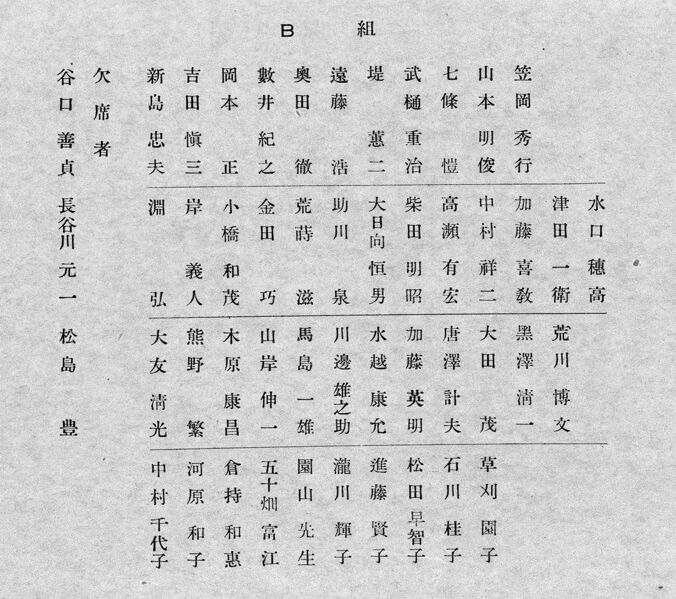 B 組
笠岡秀行
山本明俊
七條愷
武樋重治
堤蕙二
遠藤浩
奥田徹
數井紀之
岡本正
吉田愼三
新島忠夫
水口穗高
津田一衛
加藤喜教
中村祥二
高瀬有宏
柴田明昭
大日向恒男
助川泉
荒蒔滋
金田巧
小橋和茂
岸義人
淵弘
荒川博文
黑澤淸一
大田茂
唐澤計夫
加藤英明
水越康允
川邊雄之助
馬島一雄
山岸伸一
木原康昌
熊野繁
大友淸光
草刈園子
石川桂子
松田早智子
進藤賢子
瀧川輝子
園山先生
五十畑富江
倉持和惠
河原和子
中村千代子
欠席者
谷口善貞
長谷川元一
松島豊